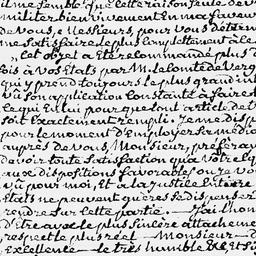 il me semble que cette raison seule dev
militer bien vivement en ma faveur
de vous, Messieurs, pour vous déterm
me satisfaire le plus complettement à ce
„ Cet objet a été recommandé plus d
fois à vos Etats par M. le Comte de Verg
qui y prend toujours le plus grand int
vû son application constante à faire
ce qui est lui pour que son article de t
soit exactement rempli. Je me disp
pour le moment d'employer sa médi
auprès de vous, Monsieur, préférant
devoir toute satisfaction qu'à votre eq
aux dispositions favorables ou je vou
vû pour moi, et à la justice entière
Etats ne peuvent guères se dispenser
rendre sur cette partie. — J'ai l'hon
d'être avec le plus sincère attachemen
respect le plus réel Monsieur
Excellence — le très humble &c et Si